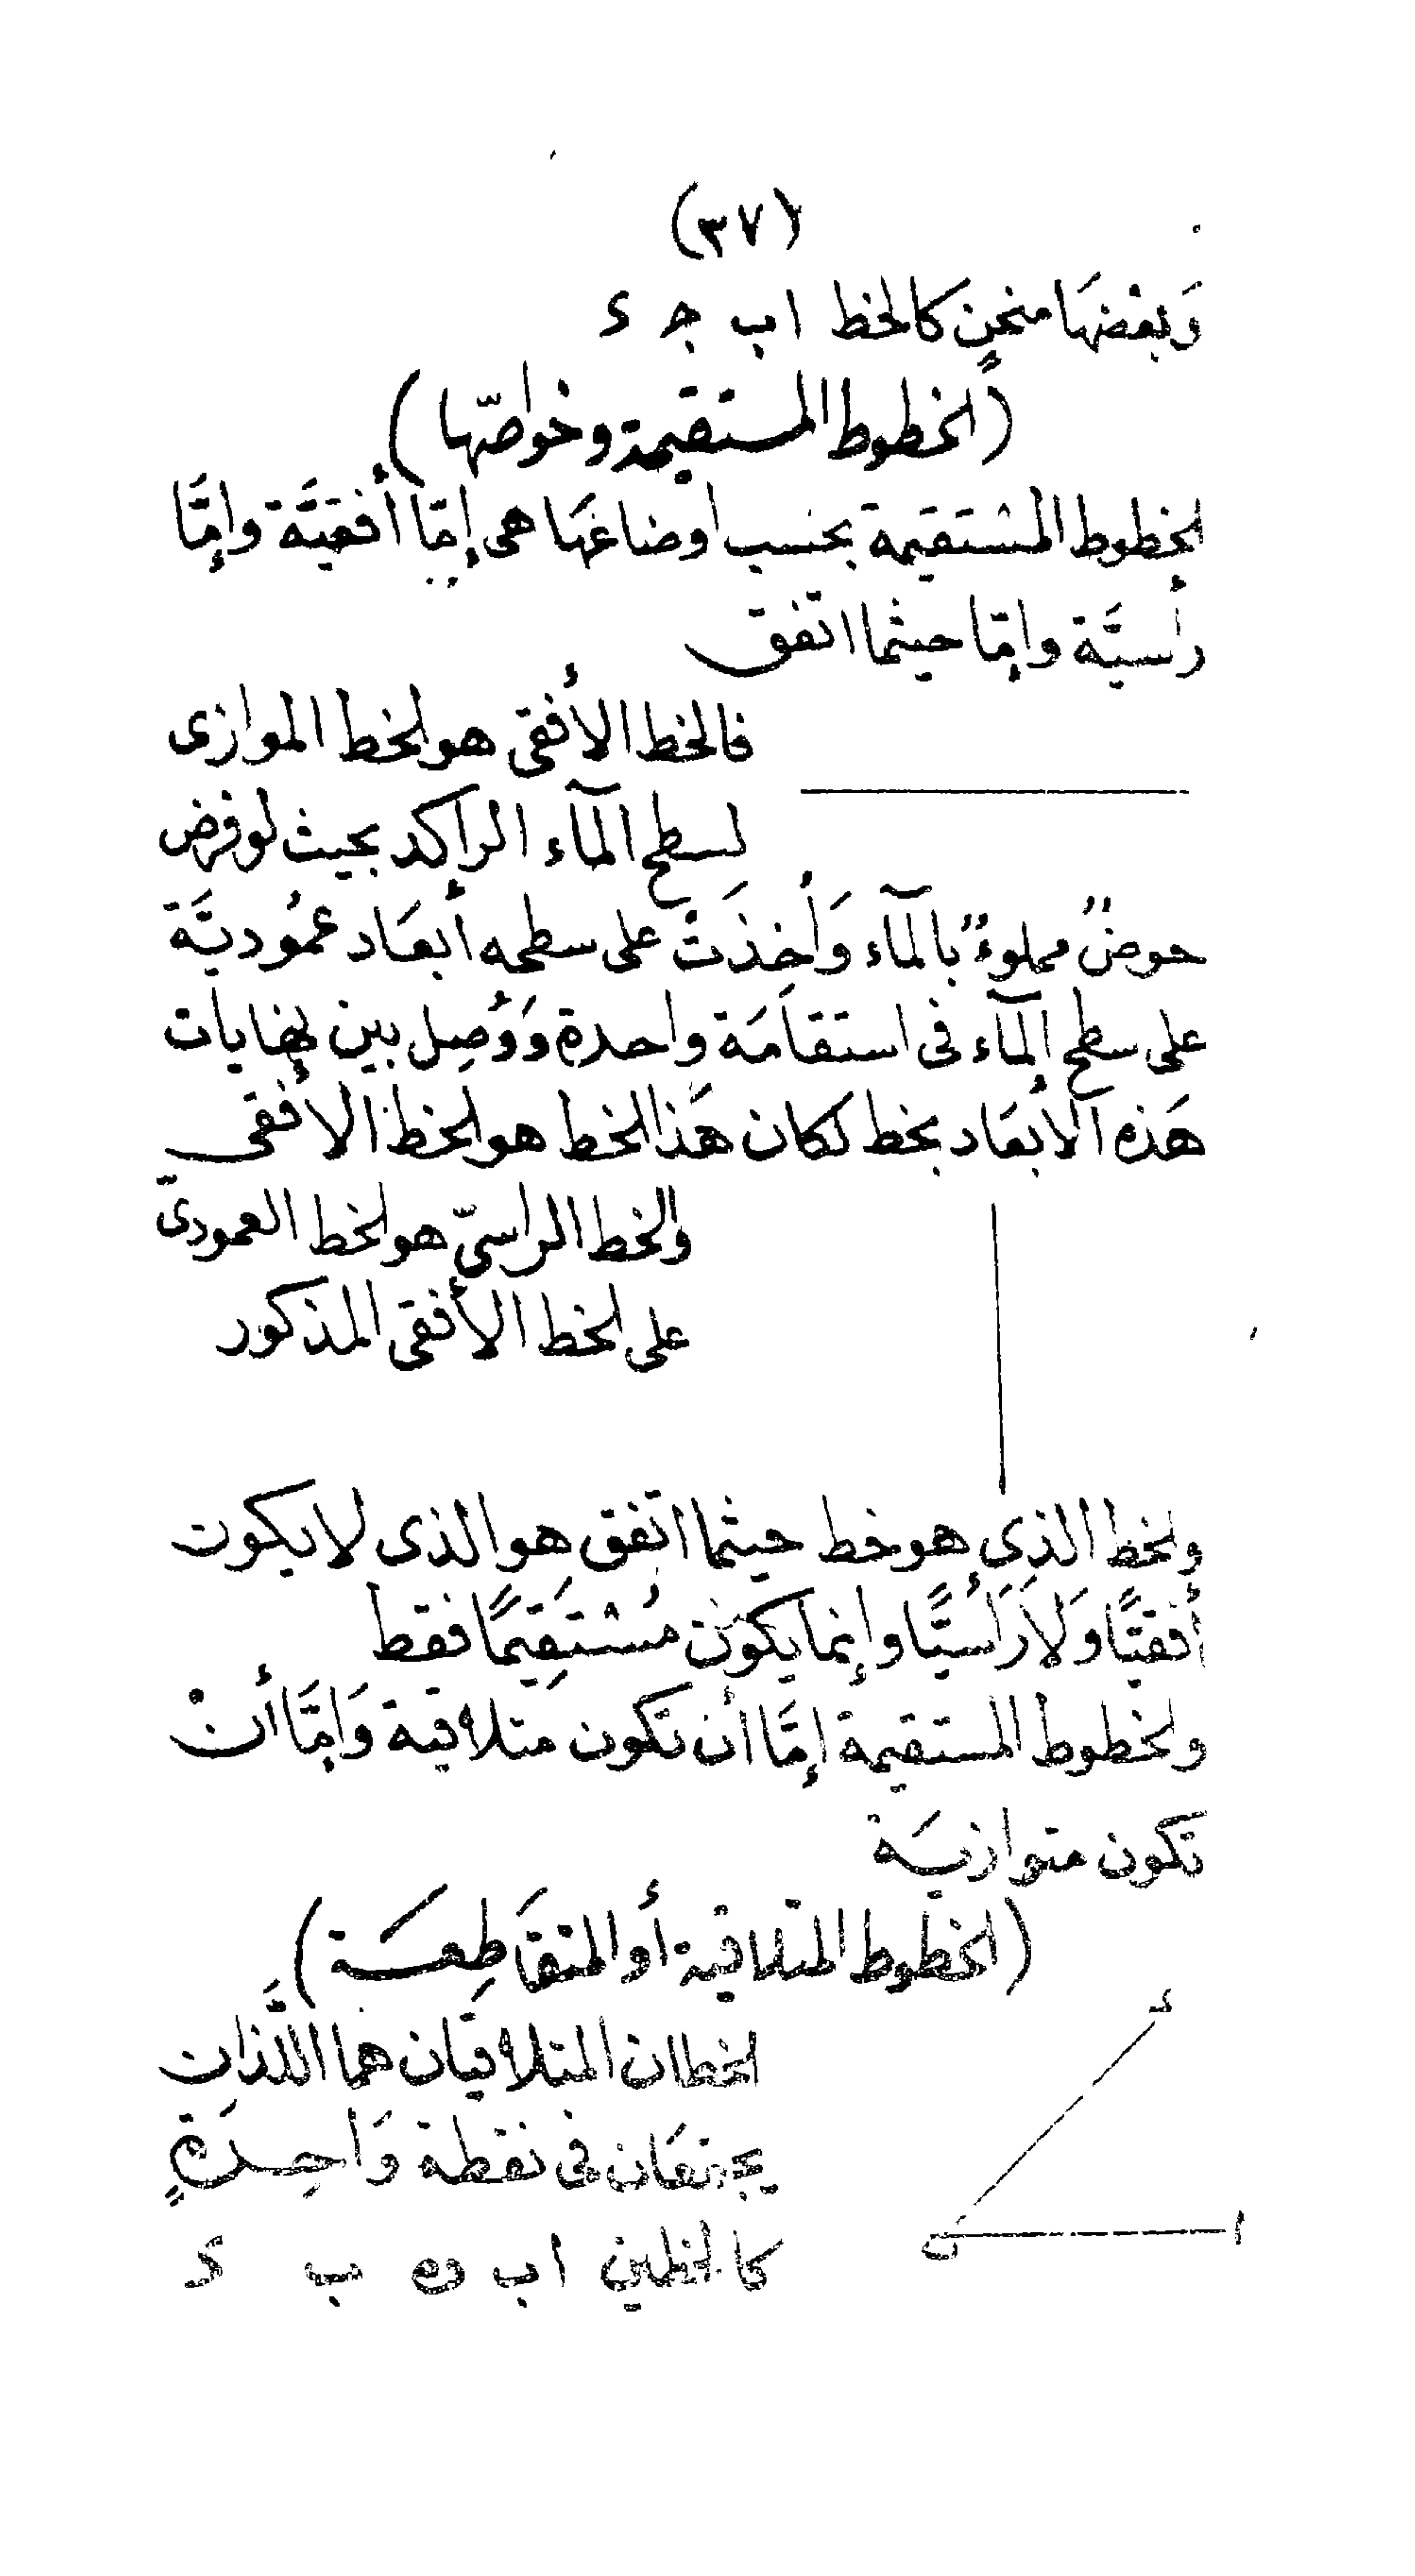 (٣٧)
وَبعْضهَا منحنٍ كالخط ا ب ج د
(الخطوط المستقيمة وخواصّها)
الخطوط المسْتَقيمة بحسب أوضاعهَا هى إمّا أفقيَّة وإمَّا
رأسيَّة وإمّا حيثما اتفق
فالخط الأفقى هو الخط الموازى
لسطح المآء الراكد بحيث لو فرض
حوضٌ مملوءٌ بالمآء وَأُخِذَتْ على سطحه أبعَاد عمُوديَّة
على سطح المآء فى استقامَة واحدة وَوُصِل بين نهايات
هَذه الأبعَاد بخط لكان هَذا الخط هو الخط الأفقى
والخط الراسىّ هو الخط العمودىّ
على الخط الأفقى المذكور
والخط الذى هو خط حيثما اتفق هو الذى لا يكون
أفقيًّا وَلاَ رَأسيًّا وإنما يكون مُسْتَقِيمًا فقط
والخطوط المستقيمة إمَّا أن تكون متلاقية وَإمَّا أنْ
تكون متوازيَة
(الخطوط المتلاقية أو المتقَاطِعَة)
الخطان المتلاقيان هما اللَّذان
يجتمعَان فى نقطة وَاحِدَةٍ
كالخطين ا ب و ب د
د
ب
ا